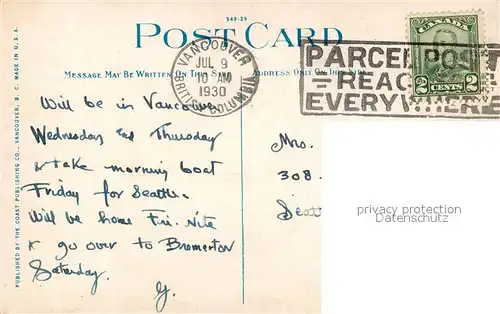 349-29
POST CARD
MESSAGE MAY BE WRITTEN ON THIS SIDE
ADDRESS ONLY ON THIS SIDE
PUBLISHED BY THE COAST PUBLISHING CO., VANCOUVER, B. C. MADE IN U.S.A.
VANCOUVER
JUL 9
10 AM
1930
BRITISH COLUMBIA
PARCEL POST
REACHES
EVERYWHERE
CANADA
2 CENTS 2
Will be in Vancouver
Wednesday and Thursday
& take morning boat
Friday for Seattle.
Will be home Fri. nite
& go over to Bremerton
Saturday.
Y.
Mrs.
308
Seatt
privacy protection
Datenschutz